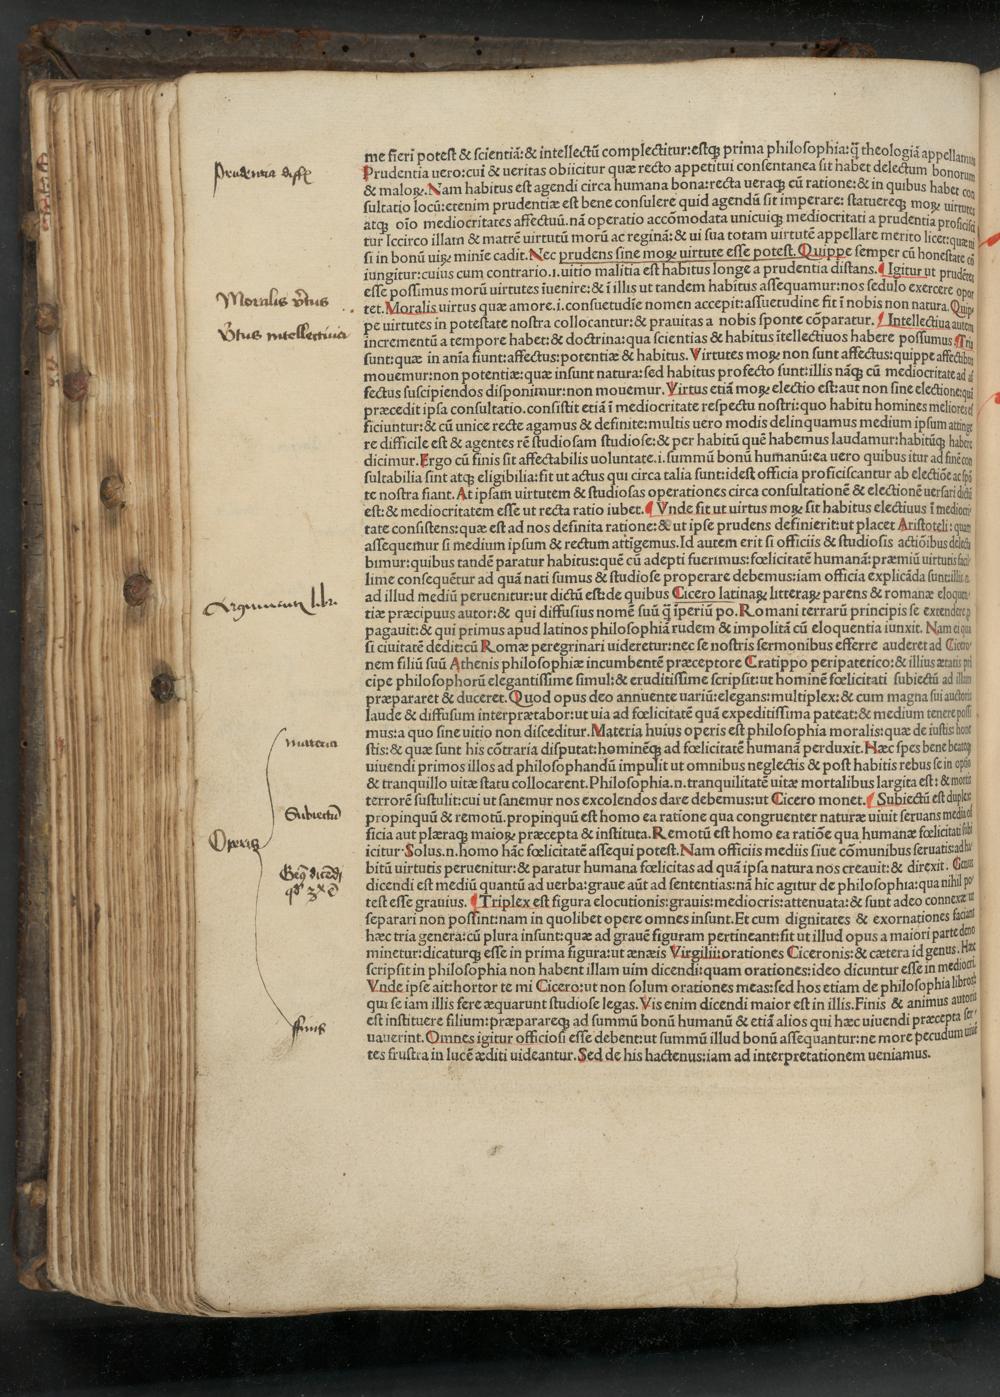 Prudentia diffo
Moralis v̄tus
V̄tus intellectiua
Argumentū libri
Operis
materia
Subiectū
Finis
me fieri potest & scientiā: & intellectū complectitur: estq; prima philosophia: q̄ theologiā appellamus
Prudentia uero: cui & ueritas obiicitur quæ recto appetitui consentanea sit habet delectum bonorum
& maloꝝ. Nam habitus est agendi circa humana bona: recta ueraq; cū ratione: & in quibus habet con
sultatio locū: etenim prudentiæ est bene consulere quid agendū sit imperare: statuereq; moꝝ uirtutes
atq; oīo mediocritates affectuū. nā operatio accōmodata unicuiq; mediocritati a prudentia proficisci
tur Iccirco illam & matrē uirtutū morū ac reginā: & ui sua totam uirtutē appellare merito licet: quæ ni
si in bonū uiꝝ minīe cadit. Nec prudens sine moꝝ uirtute esse potest. Quippe semper cū honestate cō
iungitur: cuius cum contrario .i. uitio malitia est habitus longe a prudentia distans. ¶ Igitur ut prudētes
esse possimus morū uirtutes īuenire: & ī illis ut tandem habitus assequamur: nos sedulo exercere opor
tet. Moralis uirtus quæ amore .i. consuetudīe nomen accepit: assuetudine fit ī nobis non natura. Quip
pe uirtutes in potestate nostra collocantur: & prauitas a nobis sponte cōparatur. ¶ Intellectiua autem
incrementū a tempore habet: & doctrina: qua scientias & habitus ītellectiuos habere possumus ¶ Tria
sunt: quæ in anīa fiunt: affectus: potentiæ & habitus. Virtutes moꝝ non sunt affectus: quippe affectibus
mouemur: non potentiæ: quæ insunt natura: sed habitus profecto sunt: illis nāq; cū mediocritate ad af
fectus suscipiendos disponimur: non mouemur. Virtus etiā moꝝ electio est: aut non sine electione: quā
præcedit ipsa consultatio. consistit etiā ī mediocritate respectu nostri: quo habitu homines meliores ef
ficiuntur: & cū unice recte agamus & definite: multis uero modis delinquamus medium ipsum attinge
re difficile est & agentes rē studiosam studiose: & per habitū quē habemus laudamur: habitūq; habere
dicimur. Ergo cū finis sit affectabilis uoluntate .i. summū bonū humanū: ea uero quibus itur ad finē con
sultabilia sint atq; eligibilia: fit ut actus qui circa talia sunt: idest officia proficiscantur ab electiōe ac spō
te nostra fiant. At ipsam uirtutem & studiosas operationes circa consultationē & electionē uersari dictū
est: & mediocritatem esse ut recta ratio iubet. ¶ Vnde fit ut uirtus moꝝ sit habitus electiuus ī medioci
tate consistens: quæ est ad nos definita ratione: & ut ipse prudens definierit: ut placet Aristoteli: quam
assequemur si medium ipsum & rectum attīgemus. Id autem erit si officiis & studiosis actiōibus delecta
bimur: quibus tandē paratur habitus: quē cū adepti fuerimus: fœlicitatē humanā: præmiū uirtutis facil
lime consequētur ad quā nati sumus & studiose properare debemus: iam officia explicāda sunt: illis n.
ad illud mediū peruenitur: ut dictū est: de quibus Cicero latinaꝝ litteraꝝ parens & romanæ eloquen
tiæ præcipuus autor: & qui diffusius nomē suū q̄ īperiū po. Romani terrarū principis se extendere p
pagauit: & qui primus apud latinos philosophiā rudem & impolitā cū eloquentia iunxit. Nam ei qua
si ciuitatē dedit: cū Romæ peregrinari uideretur: nec se nostris sermonibus efferre auderet ad Cicero
nem filiū suū Athenis philosophiæ incumbentē præceptore Cratippo peripatetico: & illius ætatis prī
cipe philosophorū elegantissime simul: & eruditissime scripsit: ut hominē fœlicitati subiectū ad illam
præpararet & duceret. Quod opus deo annuente uariū: elegans: multiplex: & cum magna sui auctoris
laude & diffusum interprætabor: ut uia ad fœlicitatē quā expeditissima pateat: & medium tenere possi
mus: a quo sine uitio non disceditur. Materia huius operis est philosophia moralis: quæ de iustis: hone
stis: & quæ sunt his cōtraria disputat: hominēq; ad fœlicitatē humanā perduxit. Hæc spes bene beateq;
uiuendi primos illos ad philosophandū impulit ut omnibus neglectis & post habitis rebus se in optīo
& tranquillo uitæ statu collocarent. Philosophia .n. tranquilitatē uitæ mortalibus largita est: & mortis
terrorē sustulit: cui ut sanemur nos excolendos dare debemus: ut Cicero monet. ¶ Subiectū est duplex
propinquū & remotū. propinquū est homo ea ratione qua congruenter naturæ uiuit seruans media of
ficia aut plæraq; maioꝝ præcepta & instituta. Remotū est homo ea ratiōe qua humanæ fœlicitati subi
icitur. Solus .n. homo hāc fœlicitatē assequi potest. Nam officiis mediis siue cōmunibus seruatis: ad ha
bitū uirtutis peruenitur: & paratur humana fœlicitas ad quā ipsa natura nos creauit: & direxit. Genus
dicendi est mediū quantū ad uerba: graue aūt ad sententias: nā hic agitur de philosophia: qua nihil po
test esse grauius. ¶ Triplex est figura elocutionis: grauis: mediocris: attenuata: & sunt adeo connexæ ut
separari non possint: nam in quolibet opere omnes insunt. Et cum dignitates & exornationes faciant
hæc tria genera: cū plura insunt: quæ ad grauē figuram pertineant: fit ut illud opus a maiori parte deno
minetur: dicaturq; esse in prima figura: ut ænæis Virgilii: orationes Ciceronis: & cætera id genus. Hæc
scripsit in philosophia non habent illam uim dicendi: quam orationes: ideo dicuntur esse in mediocri.
Vnde ipse ait: hortor te mi Cicero: ut non solum orationes meas: sed hos etiam de philosophia libros:
qui se iam illis fere æquarunt studiose legas. Vis enim dicendi maior est in illis. Finis & animus autoris
est instituere filium: præparareq; ad summū bonū humanū & etiā alios qui hæc uiuendi præcepta ser
uauerint. Omnes igitur officiosi esse debent: ut summū illud bonū assequantur: ne more pecudum uiuē
tes frustra in lucē æditi uideantur. Sed de his hactenus: iam ad interpretationem ueniamus.